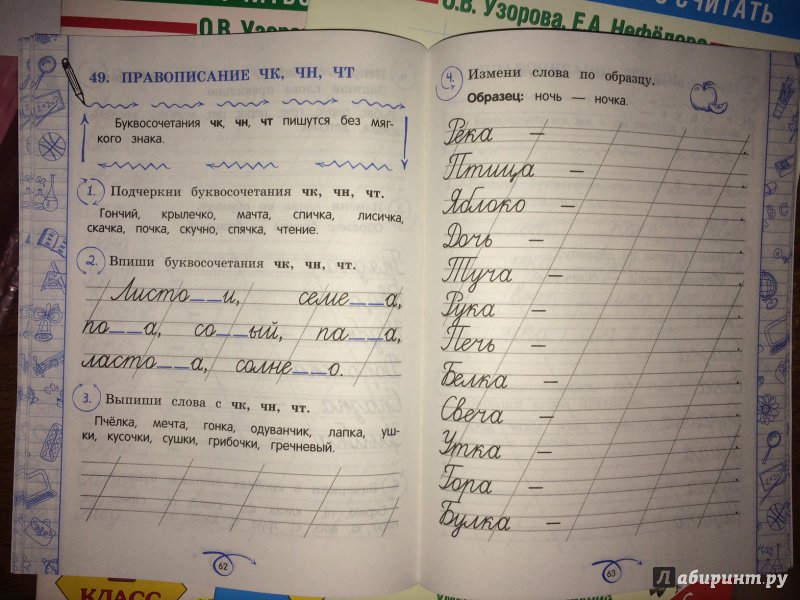 О.В. Узорова
О.В. Узорова, Е.А. Нефёдова
СЧИТАТЬ
49. ПРАВОПИСАНИЕ ЧК, ЧН, ЧТ
Буквосочетания чк, чн, чт пишутся без мяг-
кого знака.
1. Подчеркни буквосочетания чк, чн, чт.
Гончий, крылечко, мачта, спичка, лисичка,
скачка, почка, скучно, спячка, чтение.
2. Впиши буквосочетания чк, чн, чт.
Листо__и, семе__а,
по__а, со__ый, па__а,
ласто__а, солне__о.
3. Выпиши слова с чк, чн, чт.
Пчёлка, мечта, гонка, одуванчик, лапка, уш-
ки, кусочки, сушки, грибочки, гречневый.
62
4. Измени слова по образцу.
Образец: ночь — ночка.
Река — .
Птица — .
Яблоко — .
Дочь — .
Туча — .
Рука — .
Печь — .
Белка — .
Свеча — .
Утка — .
Гора — .
Булка — .
63
КЛАСС
Лабиринт.ру